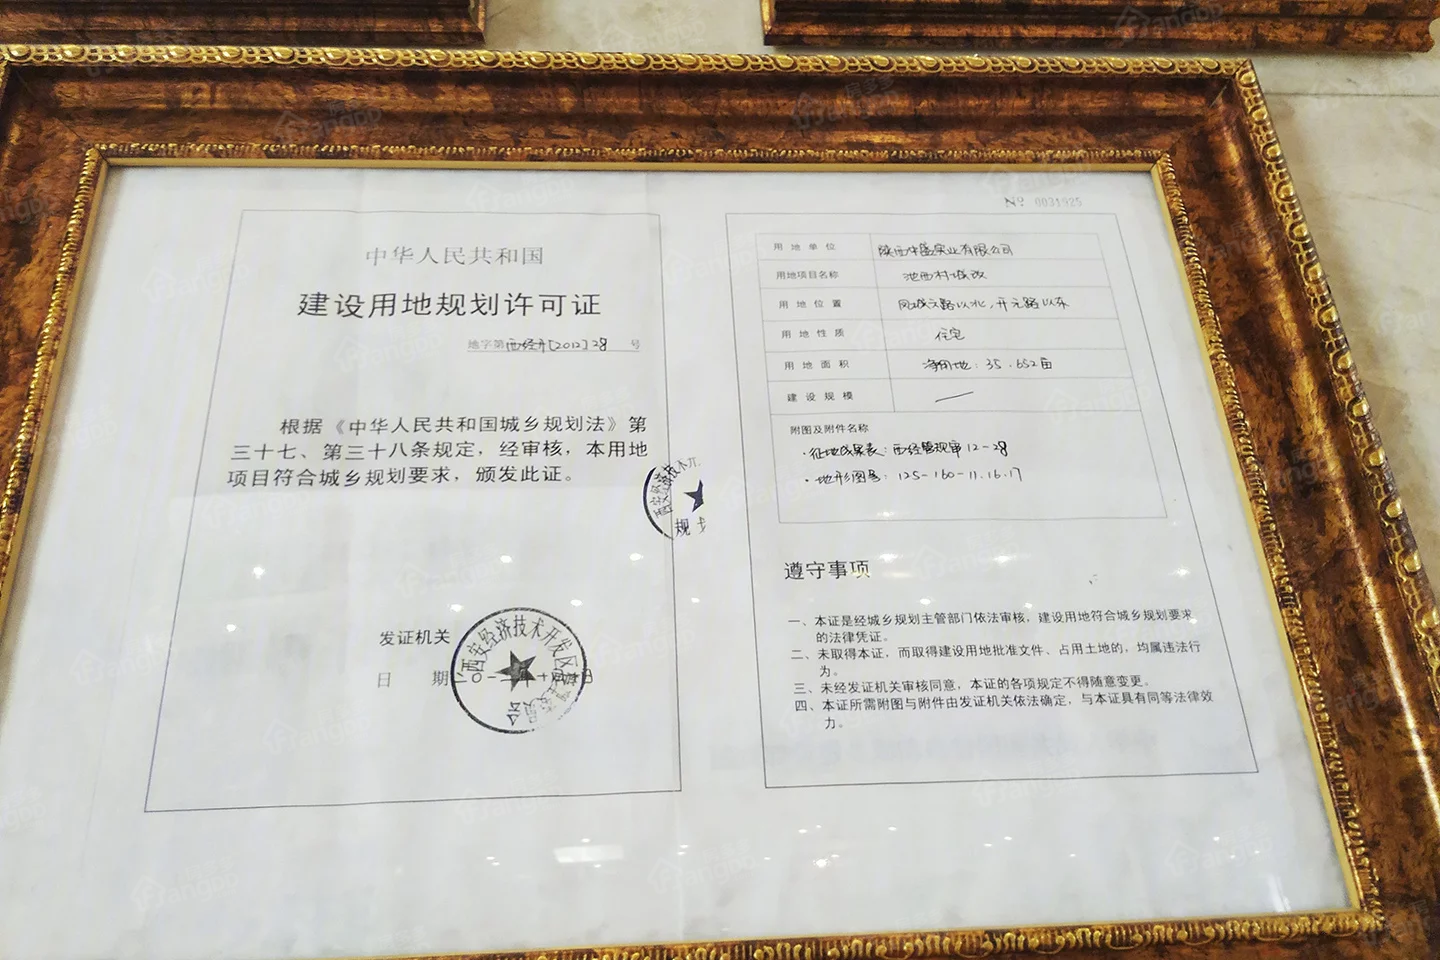 № 0031925
中华人民共和国
建设用地规划许可证
地字第西经开[2012]28号
根据《中华人民共和国城乡规划法》第
三十七、第三十八条规定，经审核，本用地
项目符合城乡规划要求，颁发此证。
发证机关
日 期
西安经济技术开发区
西安经济技术开
规划
用地单位 陕西华盛实业有限公司
用地项目名称 池西村城改
用地位置 凤城六路以北，开元路以东
用地性质 住宅
用地面积 净用地：35.652亩
建设规模 —
附图及附件名称
·征地成果表：西经管规审12-28
·地形图号：125-160-11.16.17
遵守事项
一、本证是经城乡规划主管部门依法审核，建设用地符合城乡规划要求
的法律凭证。
二、未取得本证，而取得建设用地批准文件、占用土地的，均属违法行
为。
三、未经发证机关审核同意，本证的各项规定不得随意变更。
四、本证所需附图与附件由发证机关依法确定，与本证具有同等法律效
力。